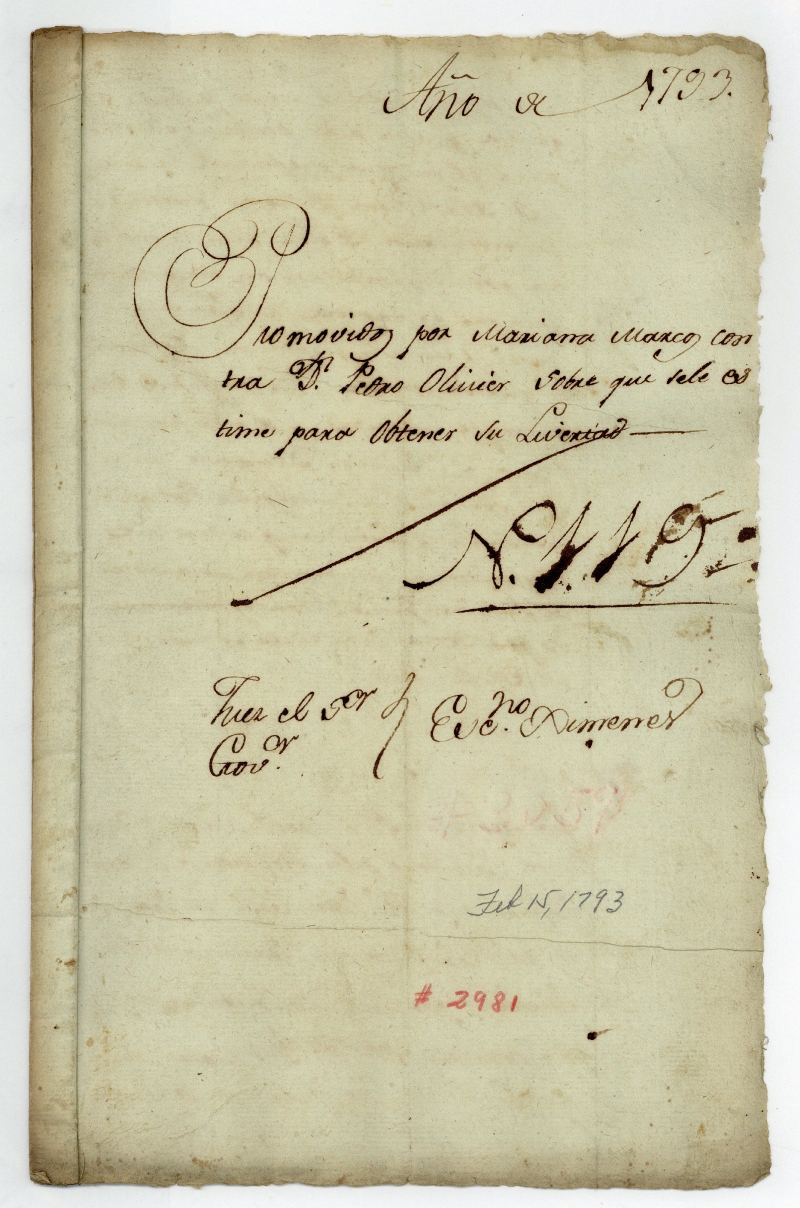 Año de 1793.
Promovidos por Mariana Marcos con
tra Dn. Pedro Olivier Sobre que sele es
time para Obtener su Livertad
N. 119
Juez el Sor
Govor.
Escno. Ximenes
Feb 15, 1793
# 2981